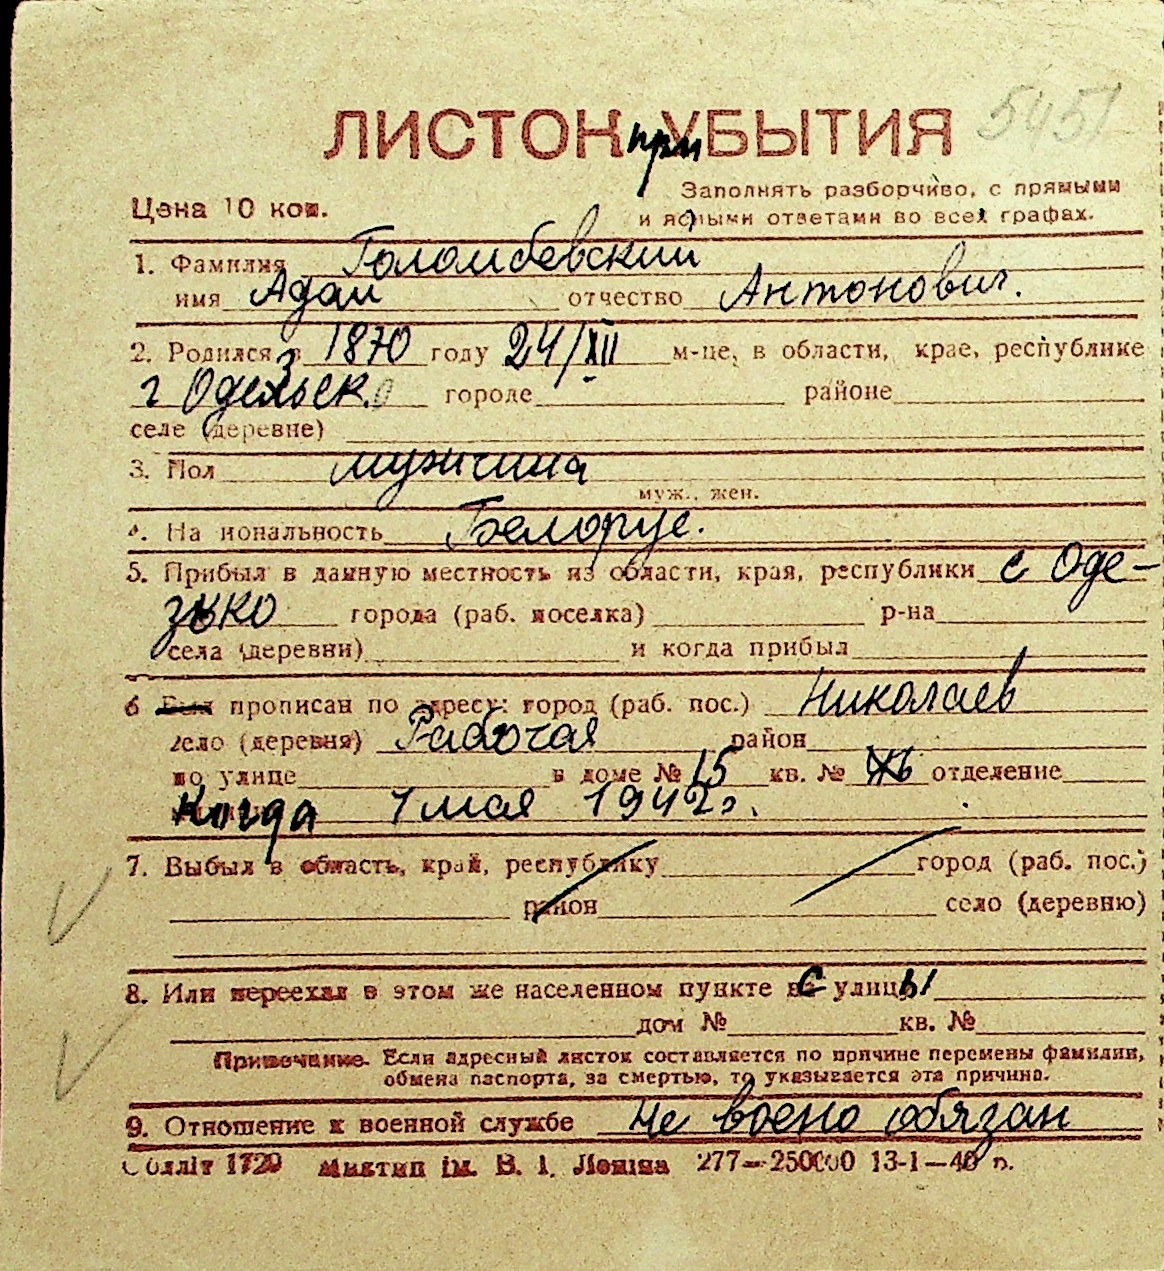 ЛИСТОК приУБЫТИЯ 5451
Заполнять разборчиво, с прямыми
Цена 10 коп. и ясными ответами во всех графах.
1. Фамилия Голомбевский
имя Адам отчество Антонович.
2. Родился в 1870 году 24/XII м-це, в области, крае, республике
г Одельск. городе районе
селе (деревне)
3. Пол мужчина
муж., жен.
4. Национальность Белорус.
5. Прибыл в данную местность из области, края, республики с Оде-
зько города (раб. поселка) р-на
села (деревни) и когда прибыл
6 Был прописан по адресу: город (раб. пос.) Николаев
село (деревня) Рабочая район
по улице в доме № 15 кв. № отделение
Когда 1 мая 1942 г.
7. Выбыл в область, край, республику город (раб. пос.)
район село (деревню)
8. Или переехал в этом же населенном пункте с улицы
дом № кв. №
Примечание. Если адресный листок составляется по причине перемены фамилии,
обмена паспорта, за смертью, то указывается эта причина.
9. Отношение к военной службе не воено обязан
Обліт 1720 Миктип ім. В. І. Леніна 277—250000 13-1—40 р.